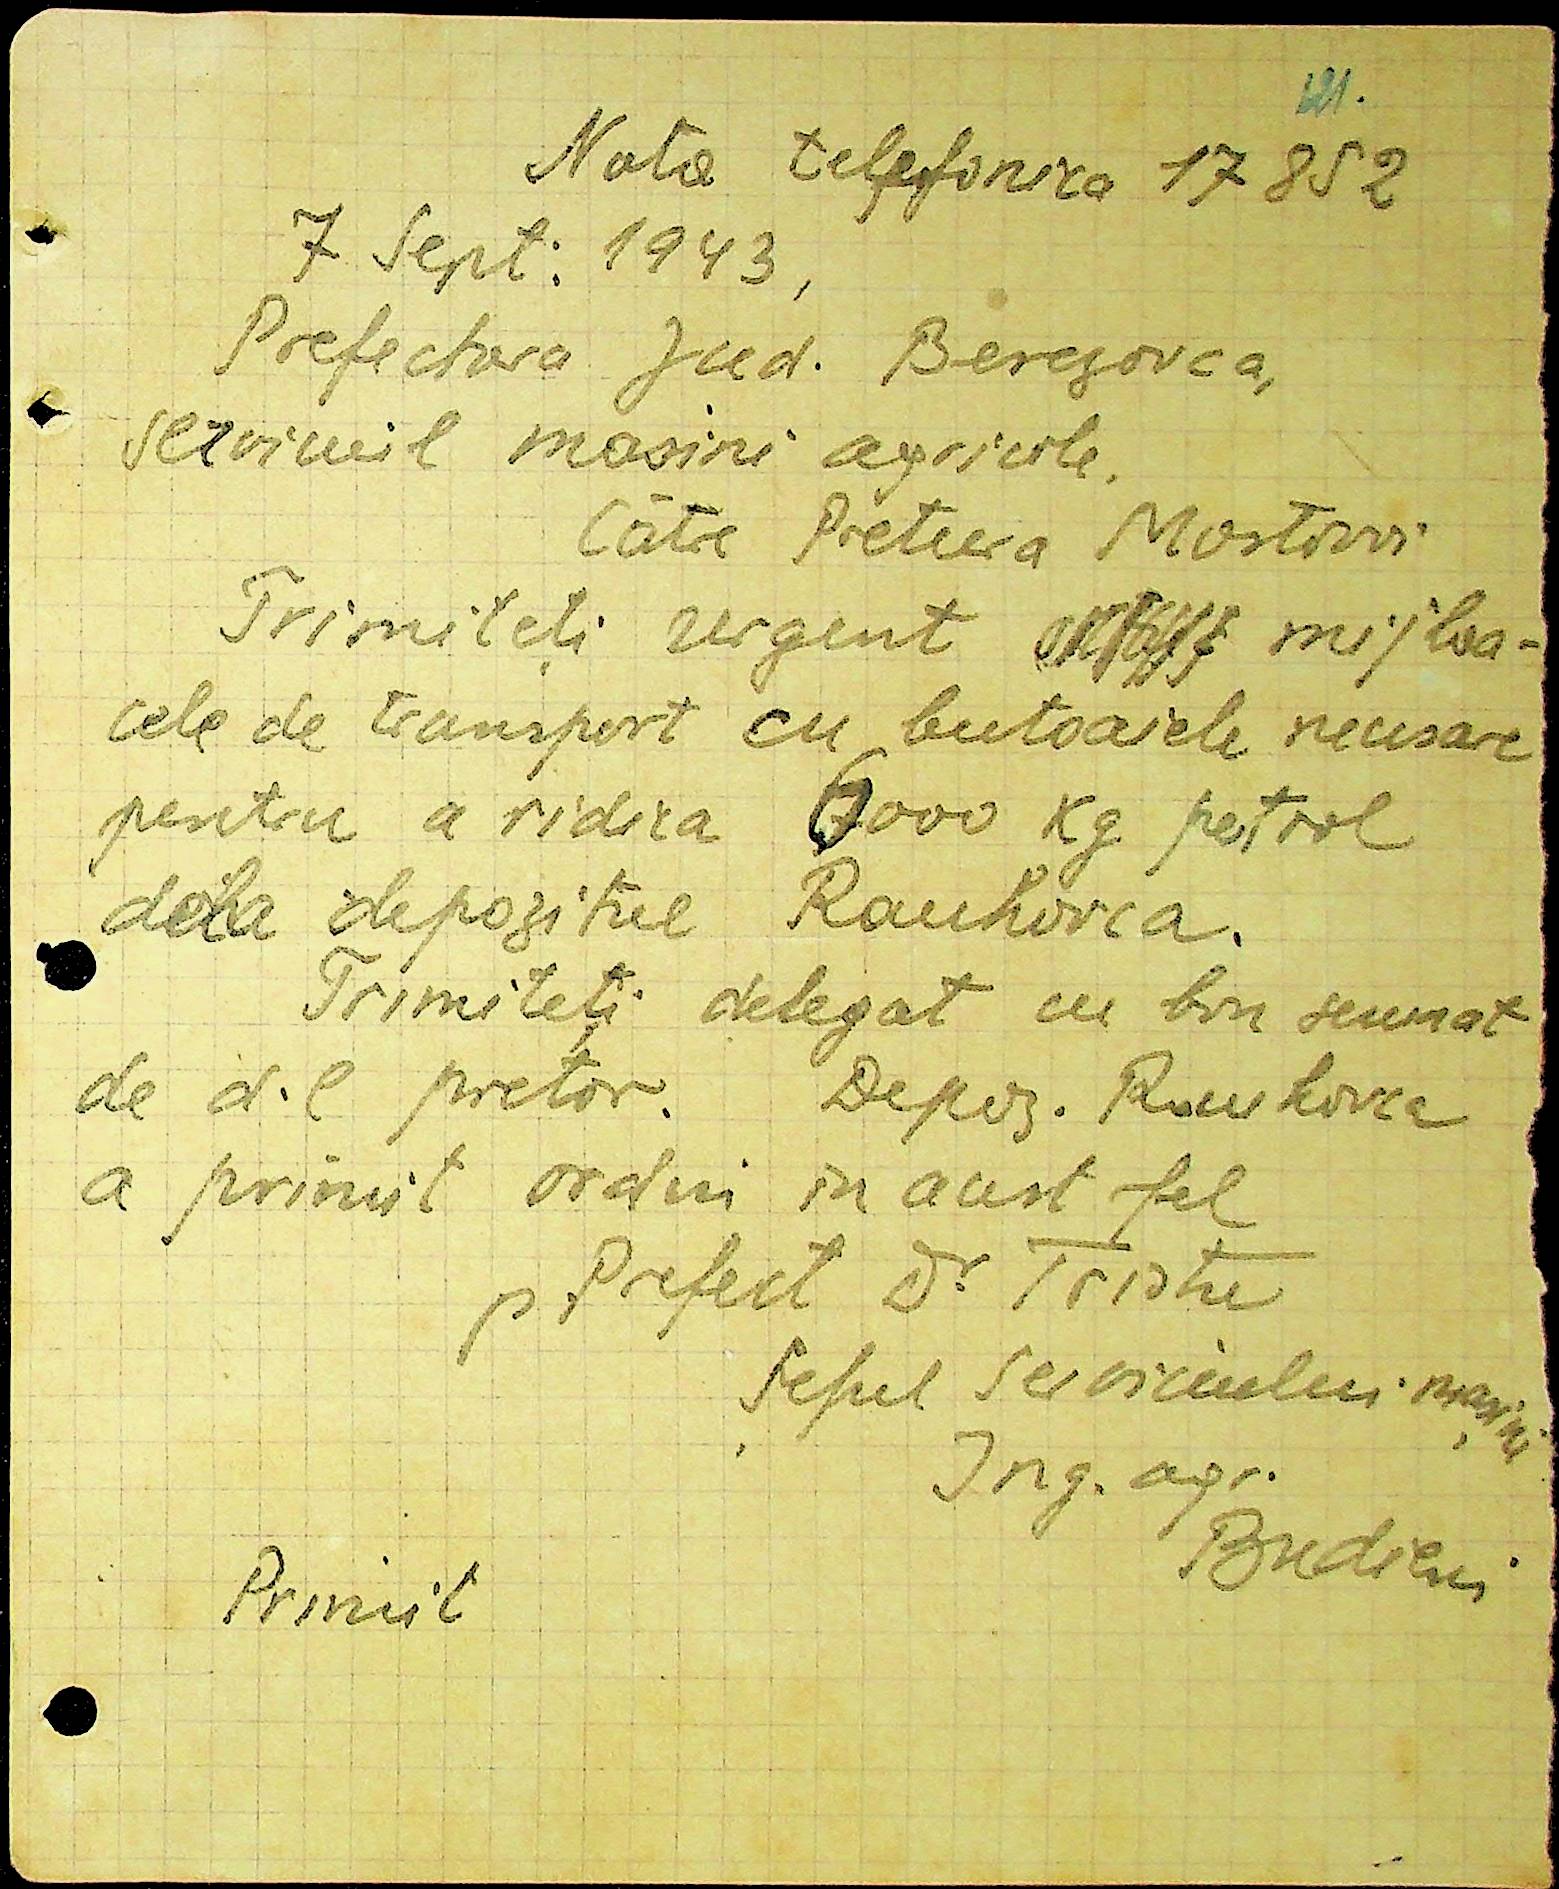 121.
Nota telefonica 17 852
7 Sept. 1943,
Prefectura Jud. Berezovca,
serviciul masini agricole.
Către Pretura Mostovoi
Trimiteți urgent mijloa-
cele de transport cu butoaiele necesare
pentru a ridica 6000 Kg petrol
dela depozitul Rauhovca.
Trimiteți delegat cu bon semnat
de d.l pretor. Depoz. Rauhovca
a primit ordin in acest fel
p Prefect Dr.
Șeful Serviciului mașini
Ing. agr.
Primit